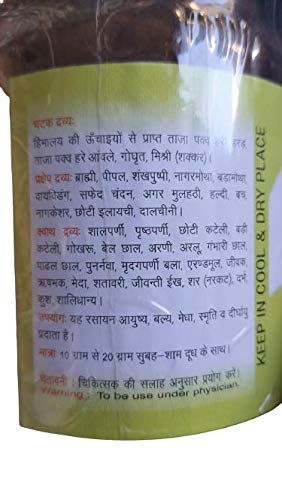 घटक द्रव्यः
हिमालय की ऊँचाइयों से प्राप्त ताजा पक्व हरी हरड़,
ताजा पक्व हरे आंवले, गोघृत, मिश्री (शक्कर)।
प्रक्षेप द्रव्यः ब्राह्मी, पीपल, शंखपुष्पी, नागरमोथा, बड़ामोथा,
वायविडंग, सफेद चंदन, अगर मुलहठी, हल्दी, बच,
नागकेशर, छोटी इलायची, दालचीनी।
क्वाथ द्रव्यः शालपर्णी, पृष्ठपर्णी, छोटी कटेली, बड़ी
कटेली, गोखरू, बेल छाल, अरणी, अरलू, गंभारी छाल,
पाढल छाल, पुनर्नवा, मृदगपर्णी बला, एरण्डमूल, जीवक,
ऋषभक, मेदा, शतावरी, जीवन्ती ईख, शर (नरकट), दर्भ,
कुश, शालिधान्य।
उपयोगः यह रसायन आयुष्य, बल्य, मेधा, स्मृति व दीर्घायु
प्रदाता है।
मात्राः 10 ग्राम से 20 ग्राम सुबह-शाम दूध के साथ।
चेतावनी : चिकित्सक की सलाह अनुसार प्रयोग करें।
Warning : To be use under physician.
KEEP IN COOL & DRY PLACE